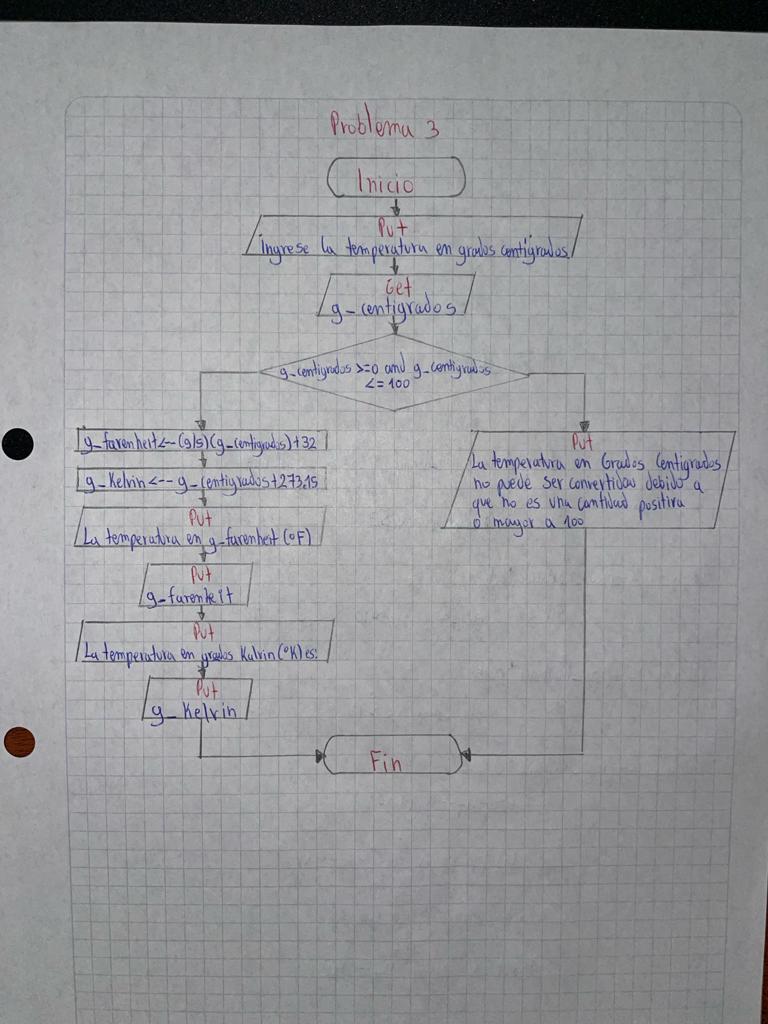 Problema 3
Inicio
Put
Ingrese la temperatura en grados centigrados
Get
g_centigrados
g_centigrados >=0 and g_centigrados
<=100
g_farenheit<--(9/5)(g_centigrados)+32
g_Kelvin<--g_centigrados+273.15
Put
La temperatura en g_farenheit (°F)
Put
g_farenheit
Put
La temperatura en grados Kalvin (°K) es:
Put
g_Kelvin
Put
La temperatura en Grados Centigrados
no puede ser convertidas debido a
que no es una cantidad positiva
o mayor a 100
Fin